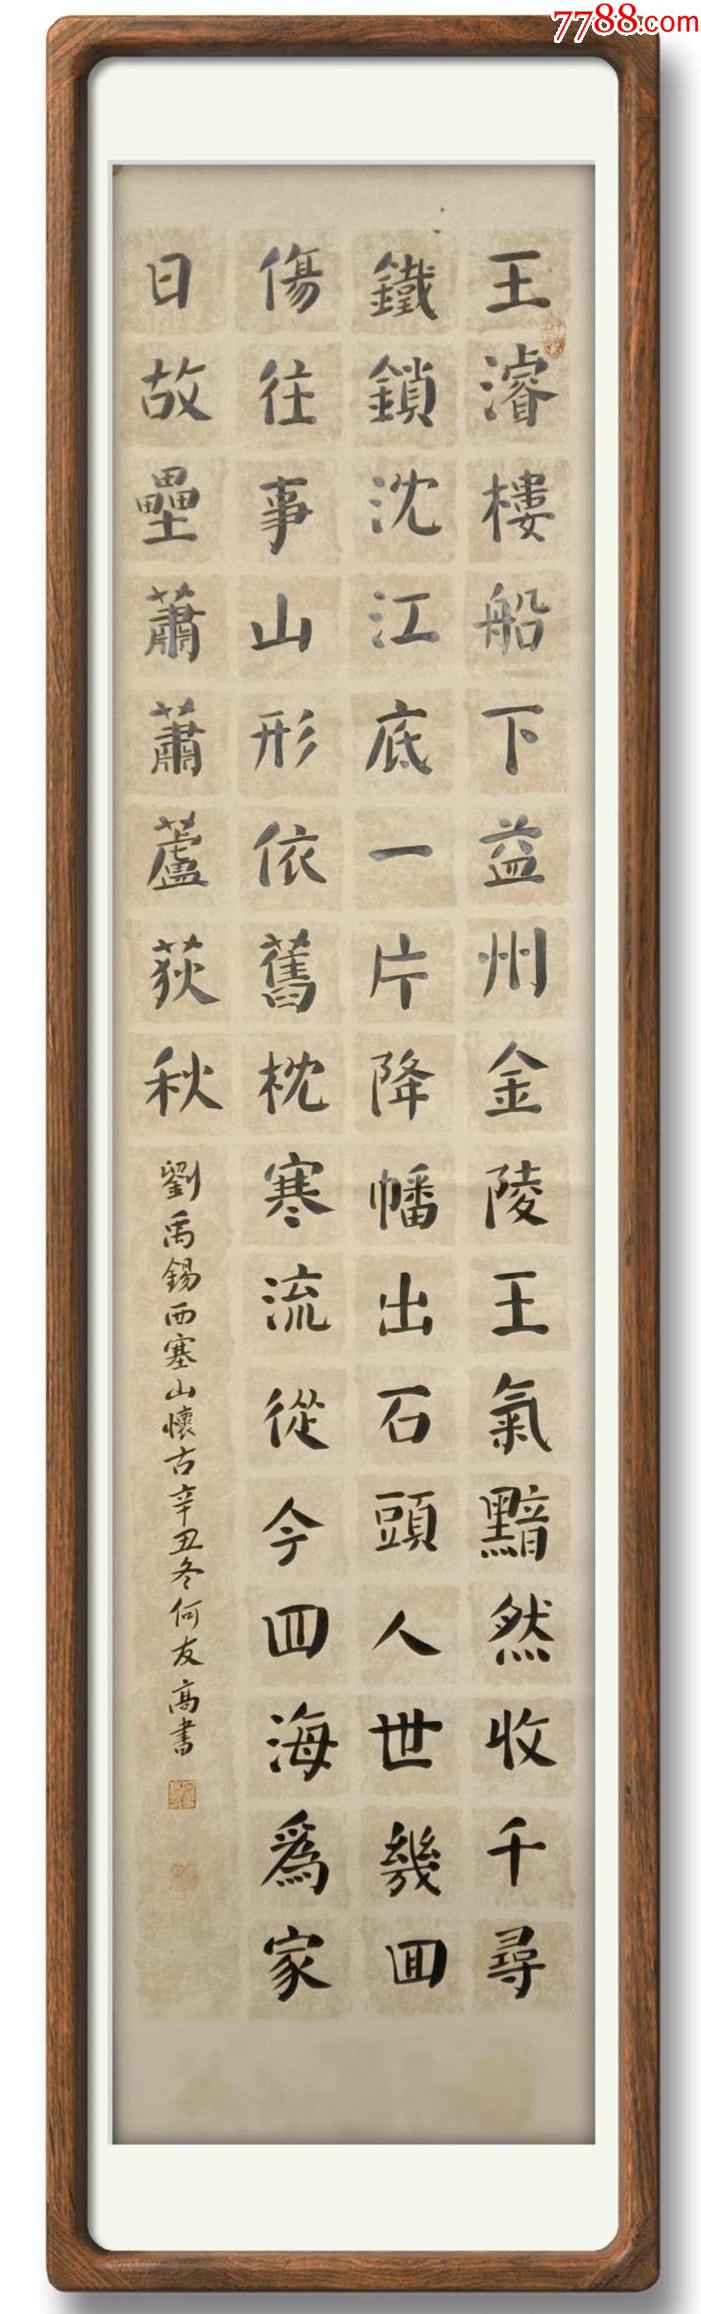 7788.com
王濬樓船下益州金陵王氣黯然收千尋
鐵鎖沈江底一片降幡出石頭人世幾回
傷往事山形依舊枕寒流從今四海爲家
日故壘蕭蕭蘆荻秋
劉禹錫西塞山懷古辛丑冬何友高書